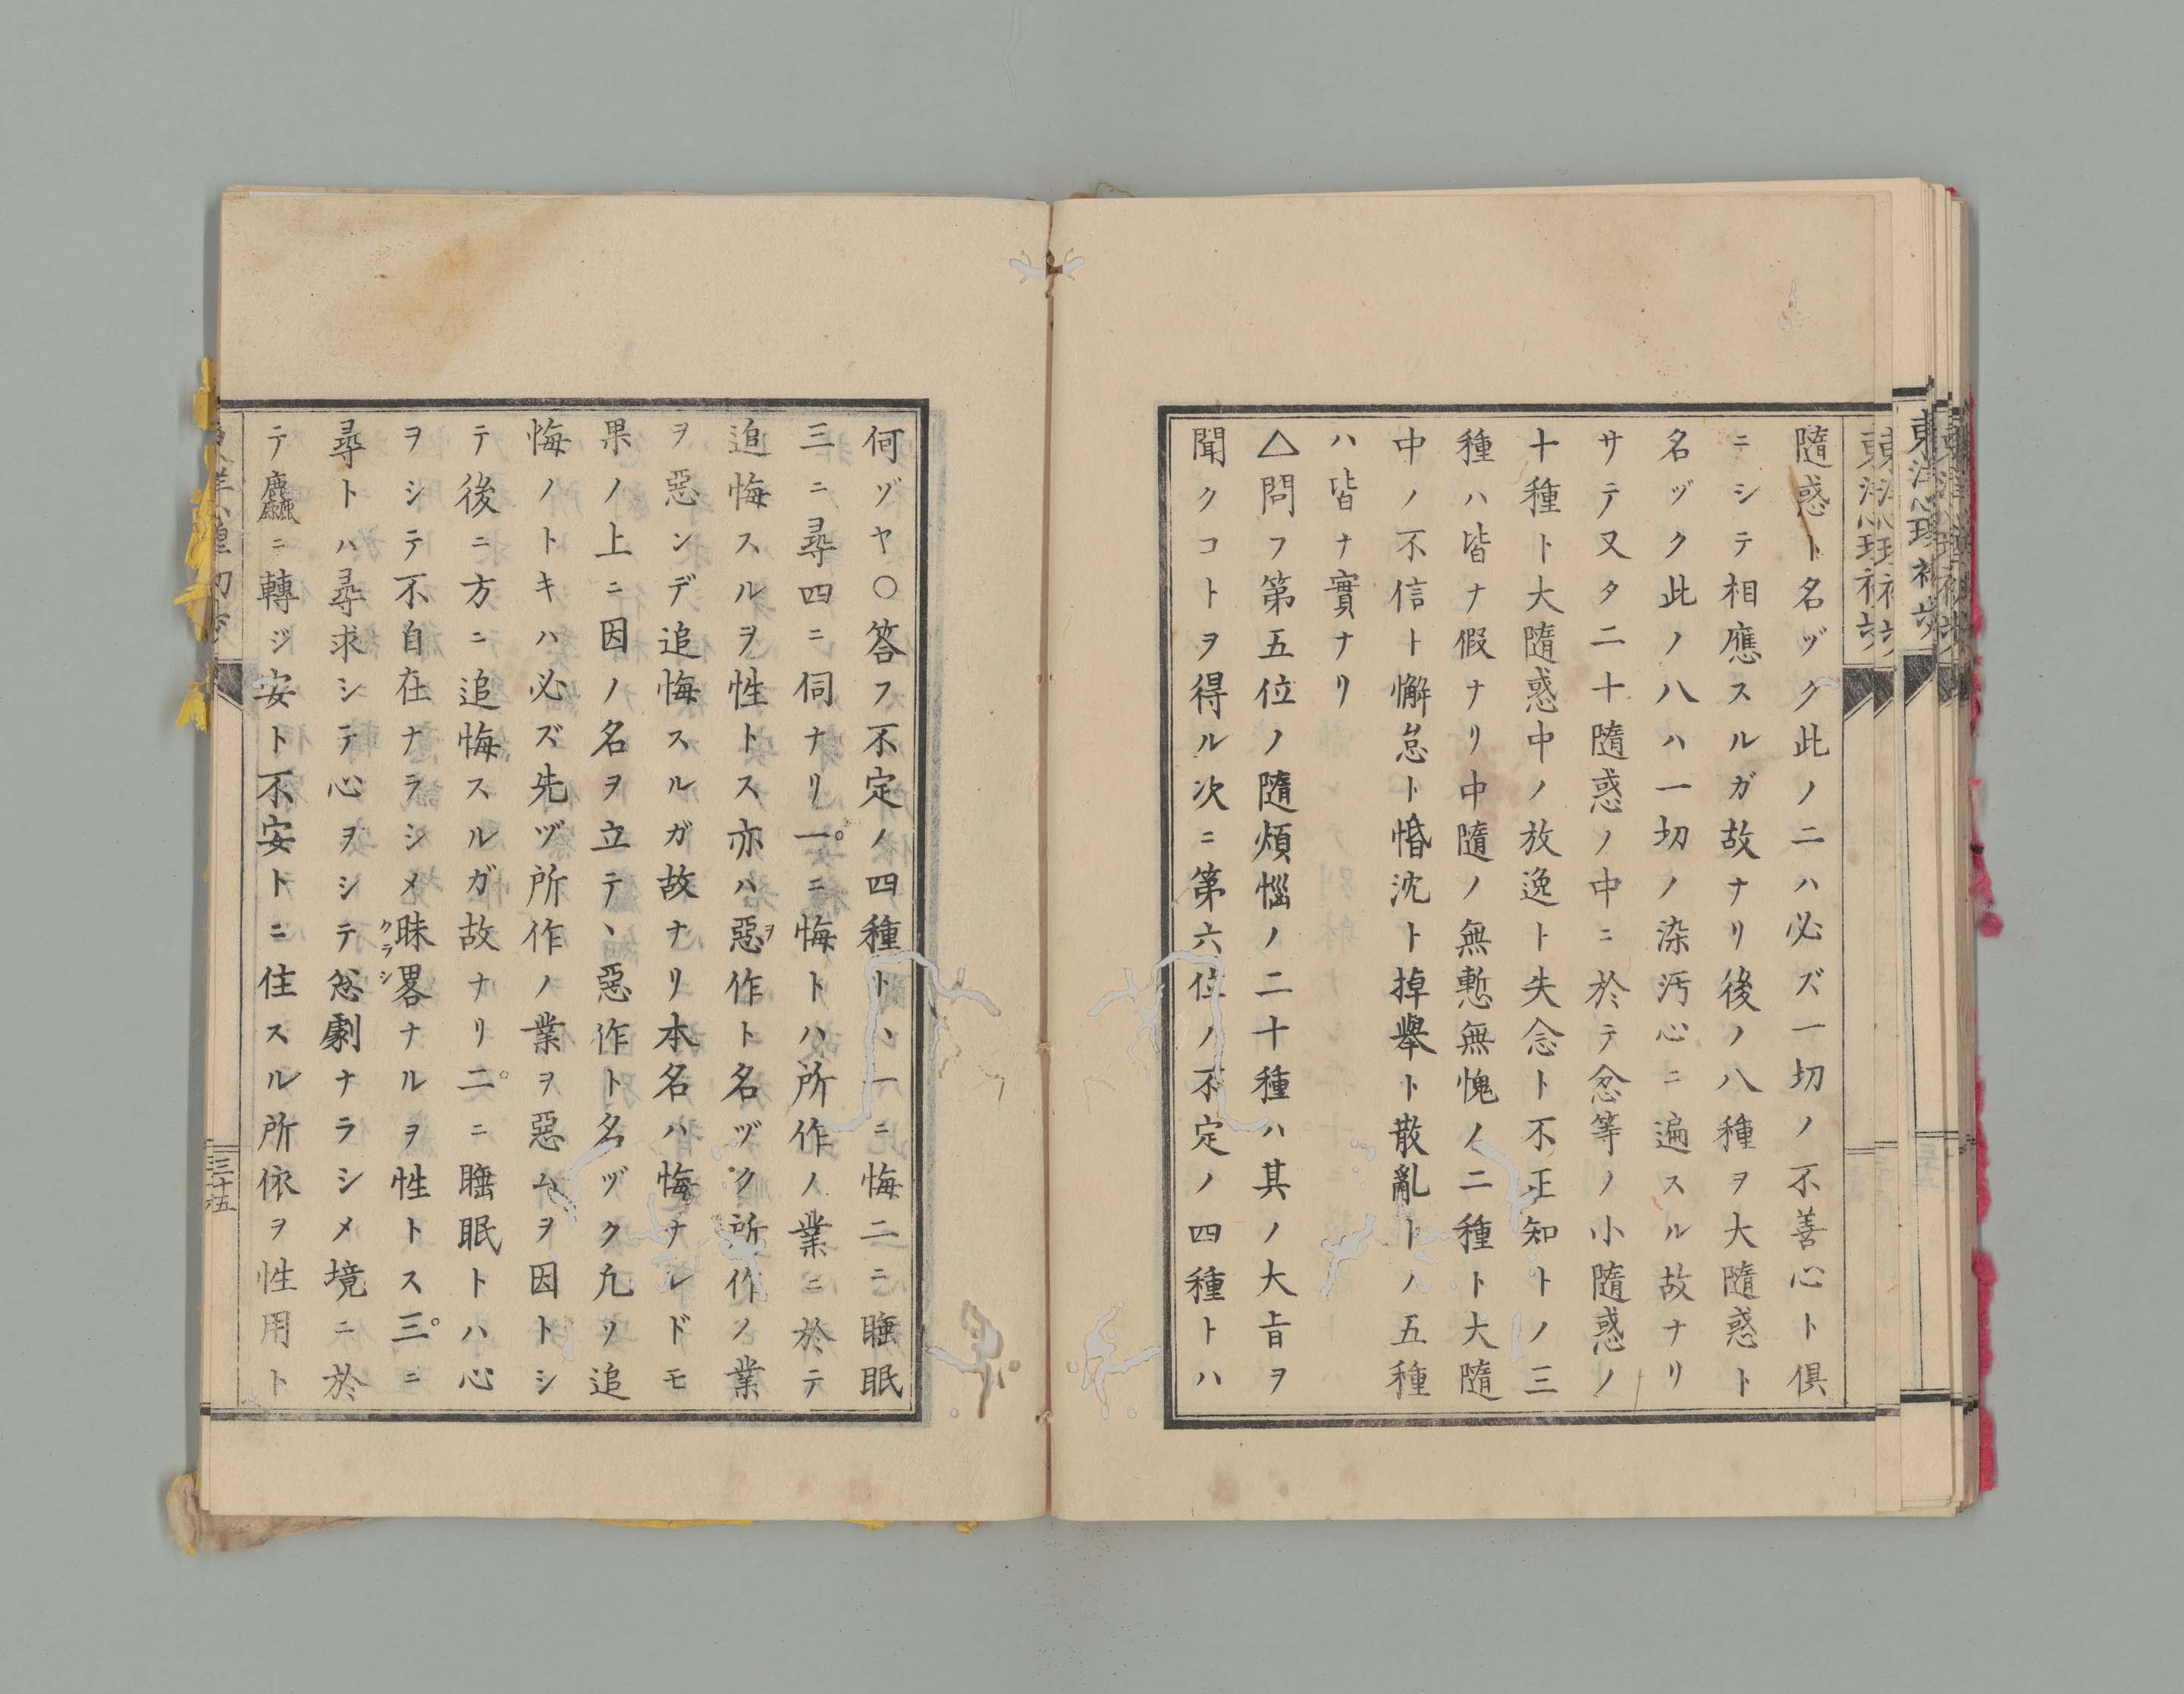 東洋心理初步
隨惑ト名ヅク此ノ二ハ必ズ一切ノ不善心ト俱
ニシテ相應スルガ故ナリ後ノ八種ヲ大隨惑ト
名ヅク此ノ八ハ一切ノ染汚心ニ遍スル故ナリ
サテ又タ二十隨惑ノ中ニ於テ忿等ノ小隨惑ノ
十種ト大隨惑中ノ放逸ト失念ト不正知トノ三
種ハ皆ナ假ナリ中隨ノ無慙無愧ノ二種ト大隨
中ノ不信ト懈怠ト惛沈ト掉舉ト散亂トノ五種
ハ皆ナ實ナリ
△問フ第五位ノ隨煩惱ノ二十種ハ其ノ大旨ヲ
聞クコトヲ得ル次ニ第六位ノ不定ノ四種トハ
何ヅヤ○答フ不定ノ四種トハ一ニ悔二ニ睡眠
三ニ尋四ニ伺ナリ一。ニ悔トハ所作ノ業ニ於テ
追悔スルヲ性トス亦ハ惡ヲ作ト名ヅク所作ノ業
ヲ惡ンデ追悔スルガ故ナリ本名ハ悔ナレドモ
果ノ上ニ因ノ名ヲ立テヽ惡作ト名ヅク凢ソ追
悔ノトキハ必ズ先ヅ所作ノ業ヲ惡ムヲ因トシ
テ後ニ方ニ追悔スルガ故ナリ二。ニ睡眠トハ心
ヲシテ不自在ナラシメ昧畧クラシナルヲ性トス三。ニ
尋トハ尋求シテ心ヲシテ忩劇ナラシメ境ニ於
テ麤ニ轉ジ安ト不安トニ住スル所依ヲ性用ト
東洋心理初步
三十五